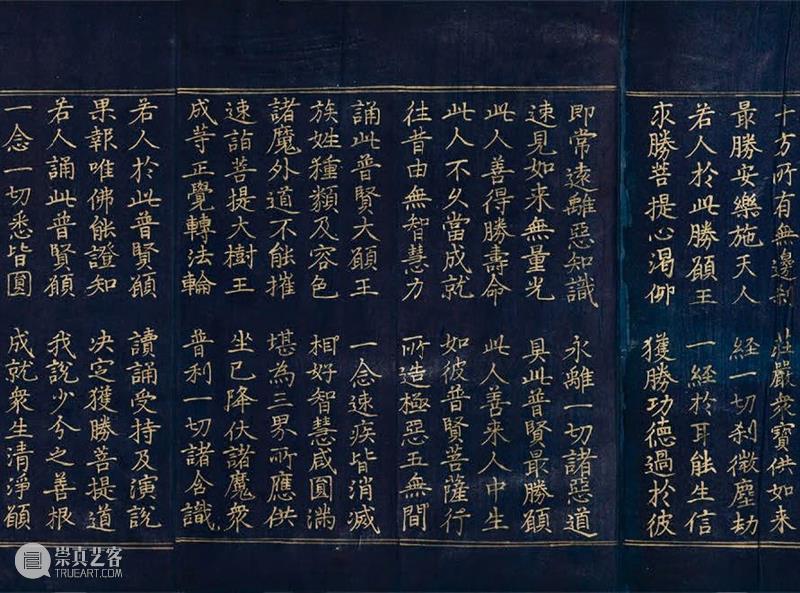 十方所有無邊刹 莊嚴衆寶供如来
最勝安樂施天人 經一切刹微塵劫
若人於此勝願王 一經於耳能生信
求勝菩提心渴仰 獲勝功德過於彼
即常逺離惡知識 永離一切諸惡道
速見如来無量光 具此普賢最勝願
此人善得勝壽命 此人善来人中生
此人不久當成就 如彼普賢菩薩行
往昔由無智慧力 所造極惡五無間
誦此普賢大願王 一念速疾皆消滅
族姓種類及容色 相好智慧咸圓滿
諸魔外道不能摧 堪為三界所應供
速詣菩提大樹王 坐已降伏諸魔衆
成等正覺轉法輪 普利一切諸含識
若人於此普賢願 讀誦受持及演說
果報唯佛能證知 決定獲勝菩提道
若人誦此普賢願 我說少分之善根
一念一切悉皆圓 成就衆生清淨願
崇真艺客
TRUEART.COM